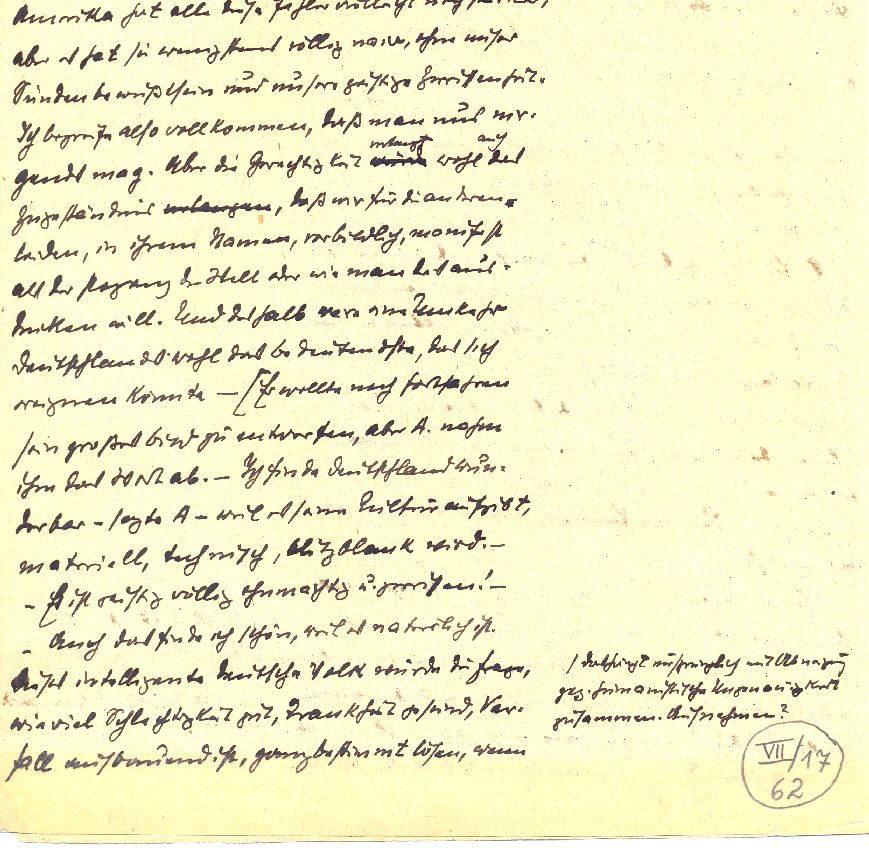 Amerika hat alle diese Fehler vielleicht noch stärker,
aber es hat sie wenigstens völlig naiv, ohne unser
Sündenbewußtsein und unsere geistige Zerrissenheit.
Ich begreife also vollkommen, daß man uns nir-
gends mag. Aber die Gerechtigkeit verlangt wohl auch das
Zugeständnis verlangen, daß wir für die anderen
leiden, in ihrem Namen, vorbildlich, manifest
als der Regang der Welt oder wie man das aus-
drücken will. Und deshalb wäre eine Umkehr
Deutschlands wohl das bedeutendste, das sich
ereignen könnte — [Er wollte noch fortfahren
sein großes Bild zu entwerfen, aber A. nahm
ihm das Wort ab. – Ich finde Deutschland wun-
derbar – sagte A – weil es seine Kultur aufgibt,
materiell, technisch, blitzblank wird. –
– Es ist geistig völlig ohnmächtig u. zerrissen! –
– Auch das finde ich schön, weil es natürlich ist.
Dieses intelligente deutsche Volk würde die Frage,
wieviel Schlechtigkeit gut, Krankheit gesund, Ver-
fall aufbauend ist, ganz bestimmt lösen, wenn
/ Das hängt ursprünglich mit Abneigung
geg. humanistische Ungenauigkeit
zusammen. Aufnehmen?
VII/17
62